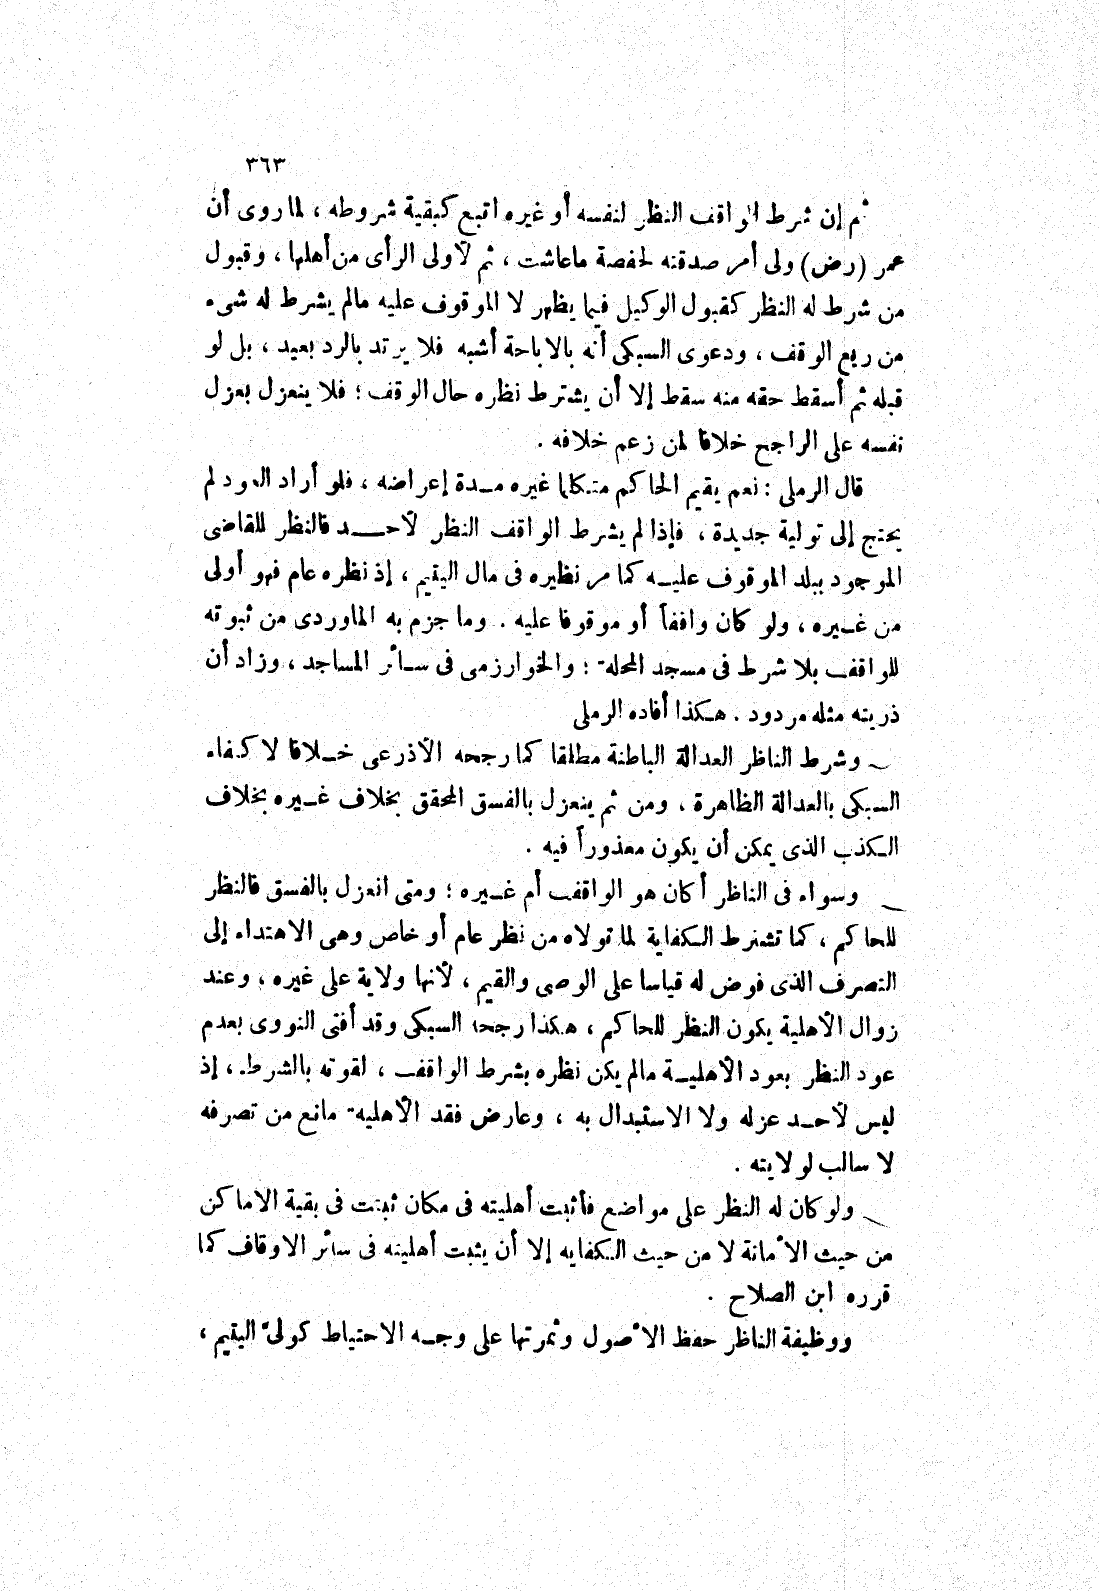 ٣٦٣
ثم إن شرط الواقف النظر لنفسه أو غيره اتبع كبقية شروطه ، لما روى أن
عمر (رض) ولى أمر صدقته لحفصة ماعاشت ، ثم لأولى الرأى من أهلها ، وقبول
من شرط له النظر كقبول الوكيل فيما يظهر لا الموقوف عليه مالم يشرط له شىء
من ريع الوقف ، ودعوى السبكى أنه بالاباحة أشبه فلا يرتد بالرد بعيد ، بل لو
قبله ثم أسقط حقه منه سقط إلا أن يشترط نظره حال الوقف ؛ فلا ينعزل بعزل
نفسه على الراجح خلافا لمن زعم خلافه .
قال الرملى : نعم يقيم الحاكم متكلما غيره مـدة إعراضه ، فلو أراد العود لم
يحتج إلى تولية جديدة ، فإذا لم يشرط الواقف النظر لأحـــد فالنظر للقاضى
الموجود ببلد الموقوف عليـه كما مر نظيره فى مال اليتيم ، إذ نظره عام فهو أولى
من غـيره ، ولو كان واقفاً أو موقوفا عليه . وما جزم به الماوردى من ثبوته
للواقف بلا شرط فى مسجد المحلة ؛ والخوارزمى فى سـائر المساجد ، وزاد أن
ذريته مثله مردود . هـكذا أفاده الرملى
ـ وشرط الناظر العدالة الباطنة مطلقا كما رجحه الأذرعى خـلافا لاكتفاء
السبكى بالعدالة الظاهرة ، ومن ثم ينعزل بالفسق المحقق بخلاف غـيره بخلاف
الـكذب الذى يمكن أن يكون معذوراً فيه .
ـ وسواء فى الناظر أكان هو الواقف أم غـيره ؛ ومتى انعزل بالفسق فالنظر
للحاكم ، كما تشترط الـكفاية لما تولاه من نظر عام أو خاص وهى الاهتداء إلى
التصرف الذى فوض له قياسا على الوصى والقيم ، لأنها ولاية على غيره ، وعند
زوال الأهلية يكون النظر للحاكم ، هكذا رجحه السبكى وقد أفتى النووى بعدم
عود النظر بعود الأهليـة مالم يكن نظره بشرط الواقف ، لقوته بالشرط ، إذ
ليس لأحـد عزله ولا الاستبدال به ، وعارض فقد الأهلية مانع من تصرفه
لا سالب لولايته .
ـ ولو كان له النظر على مواضع فأثبت أهليته فى مكان ثبتت فى بقية الاماكن
من حيث الأمانة لا من حيث الـكفايه إلا أن يثبت أهليته فى سائر الاوقاف كما
قرره ابن الصلاح .
ووظيفة الناظر حفظ الأصول وثمرتها على وجـه الاحتياط كولىّ اليتيم ،